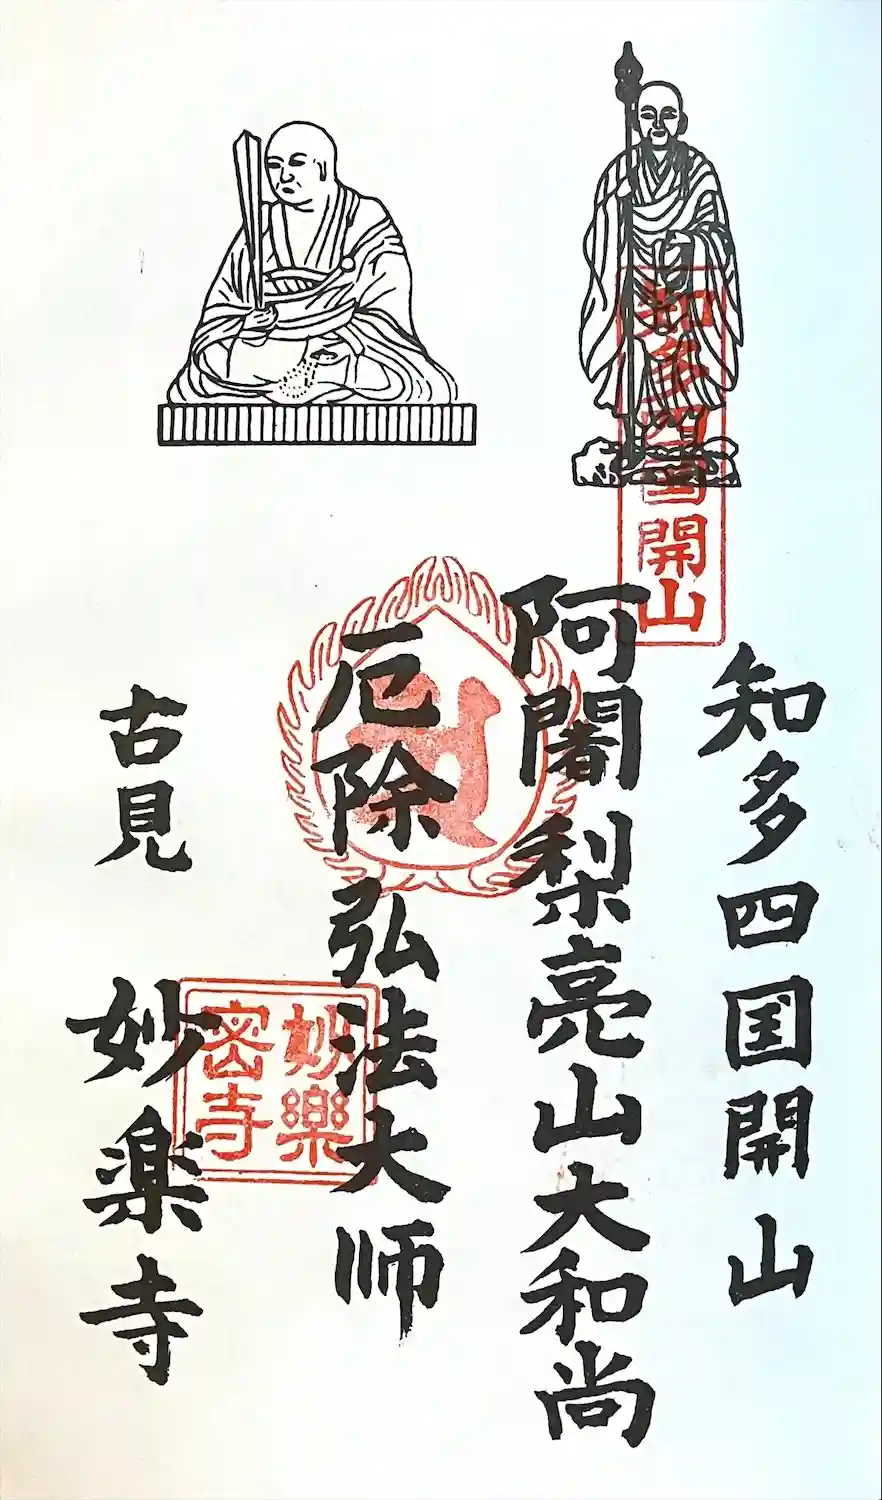 知多四国開山
知多四国開山
阿闍梨亮山大和尚
厄除弘法大師
妙樂
密寺
古見 妙楽寺